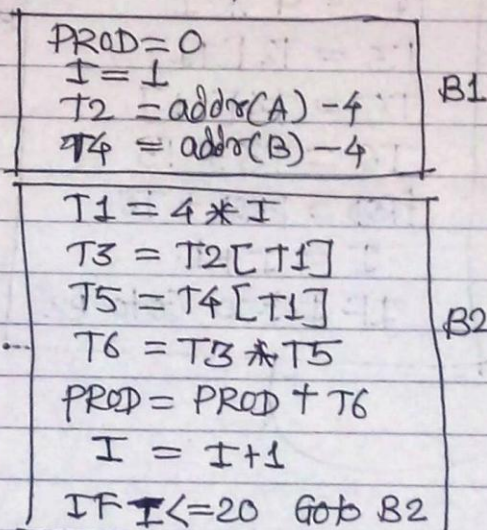 PROD = 0
I = 1
T2 = addr(A) - 4
T4 = addr(B) - 4
B1
T1 = 4 * I
T3 = T2[T1]
T5 = T4[T1]
T6 = T3 * T5
PROD = PROD + T6
I = I+1
IF I<=20 Goto B2
B2